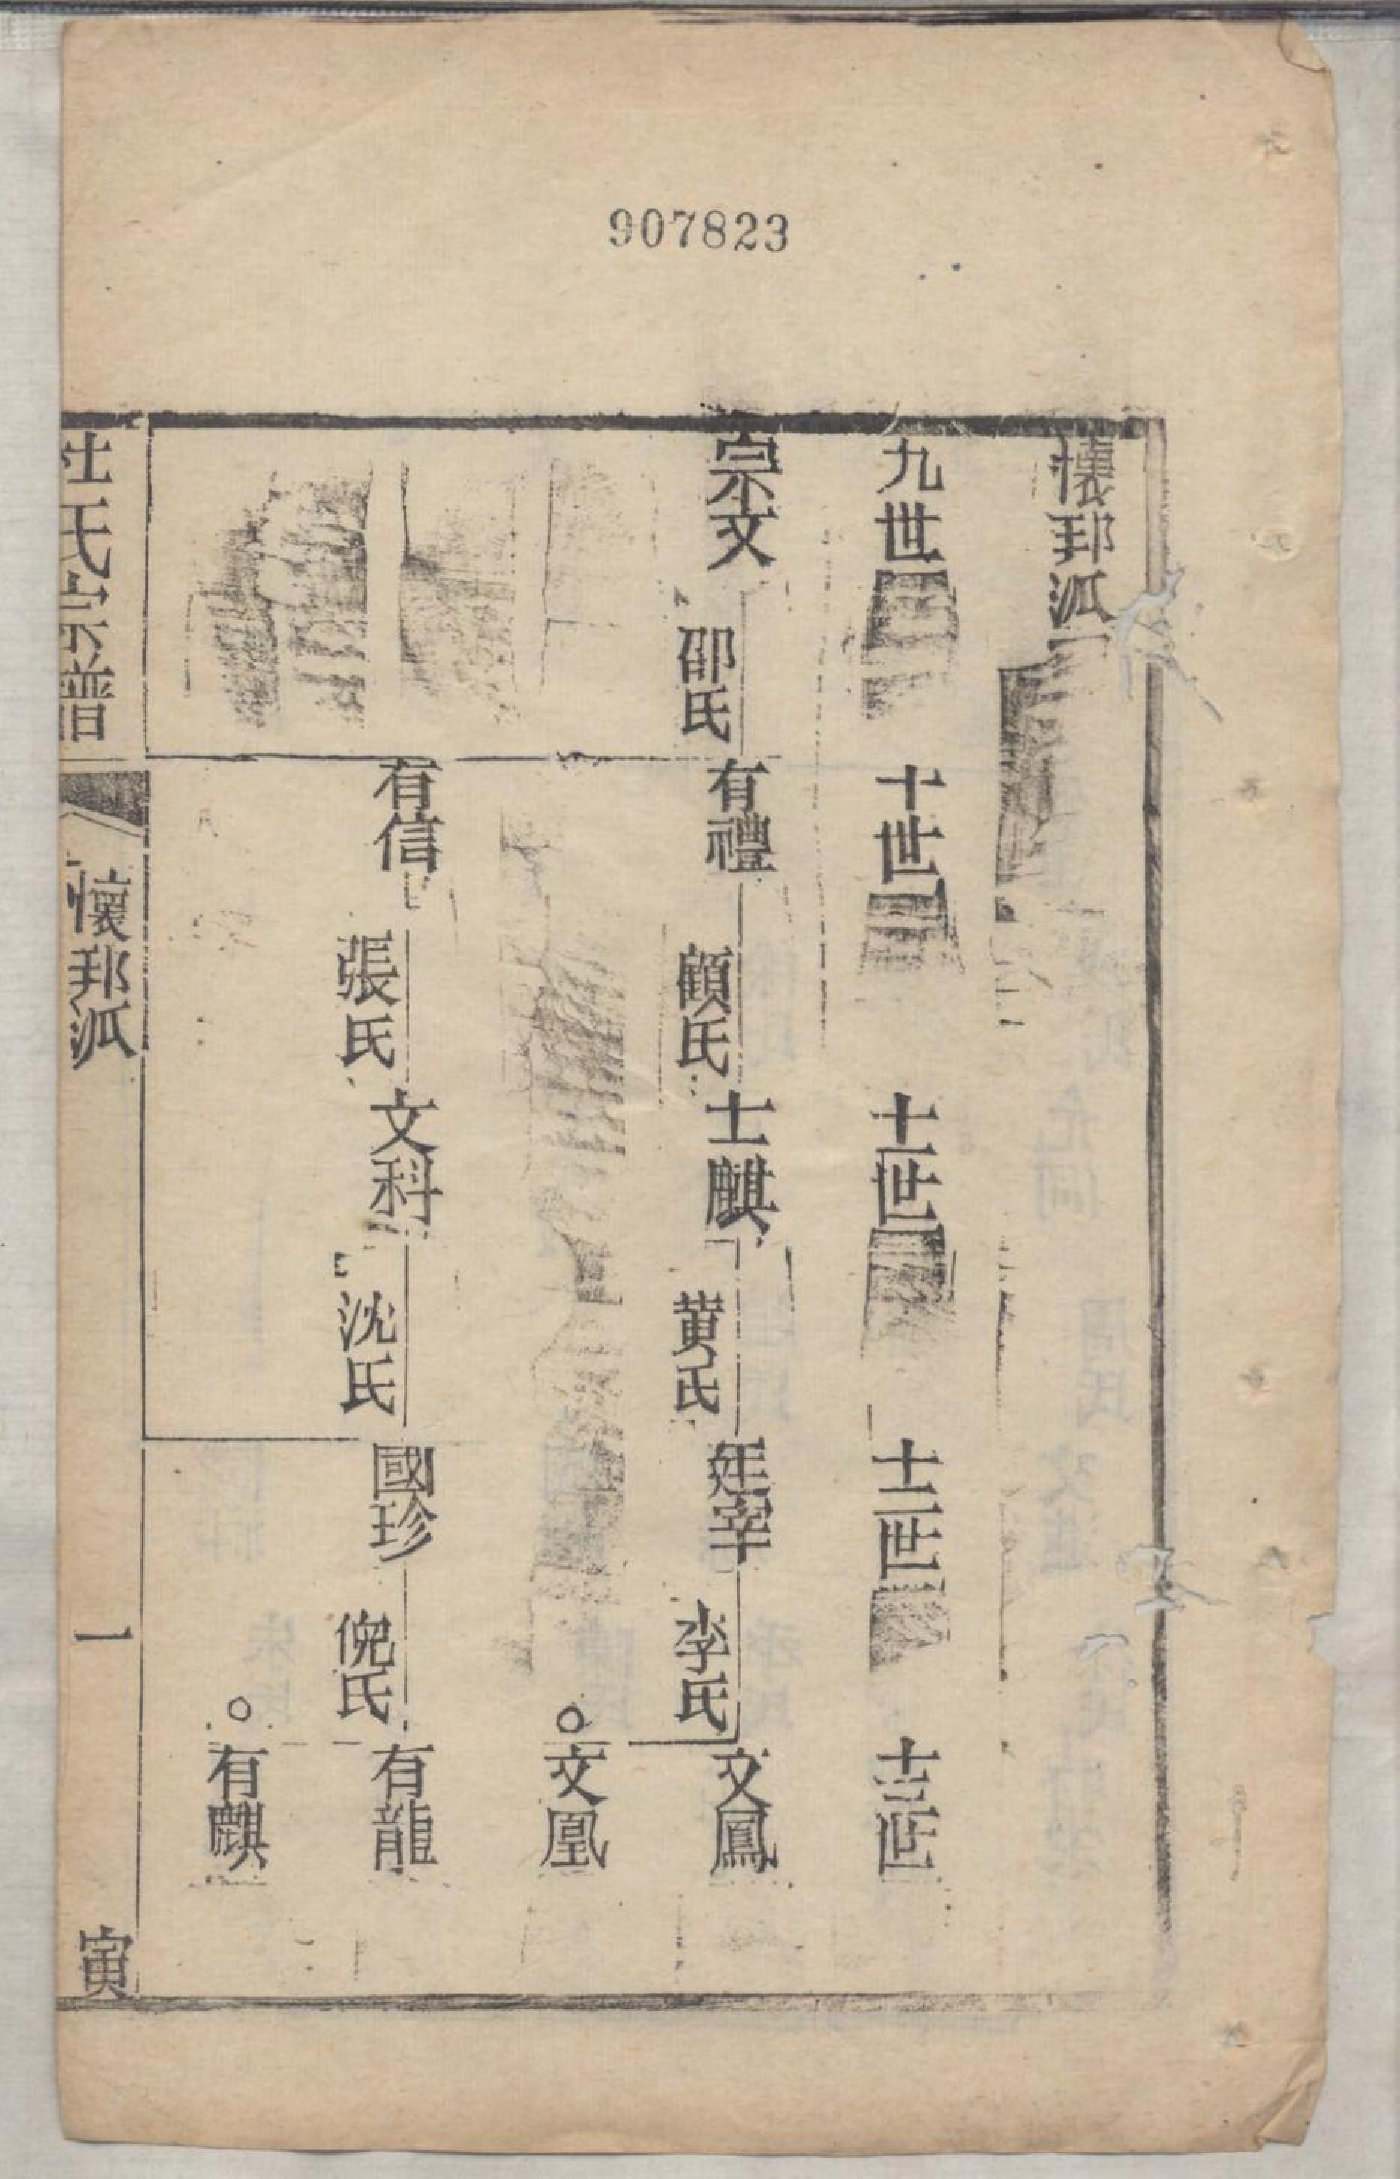 907823
懷邦派
九世 十世 十一世 十二世 十三世
宗文 邵氏 有禮 顧氏 士麒 黄氏 廷宰 李氏 文鳳
文凰
有信 張氏 文科 沈氏 國珍 倪氏 有龍
有麒
杜氏宗譜 懷邦派 一 寅